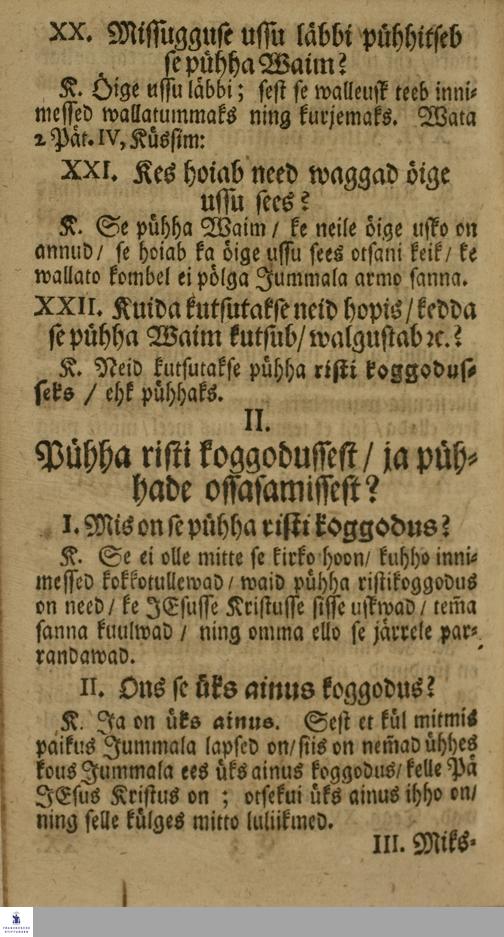 XX. Missugguse ussu läbbi pühhitseb
se pühha Waim?
K. Öige ussu läbbi; sest se walleusk teeb inni-
messed wallatummaks ning kurjemaks. Wata
2 Pät. IV, Küssim:
XXI. Kes hoiab need waggad öige
ussu sees?
K. Se pühha Waim / ke neile öige usko on
annud / se hoiab ka öige ussu sees otsani keik / ke
wallato kombel ei pölga Jummala armo sanna.
XXII. Kuida kutsutakse neid hopis / kedda
se pühha Waim kutsub / walgustab ꝛc.?
K. Neid kutsutakse pühha risti koggodus-
seks / ehk pühhaks.
II.
Pühha risti koggodussest / ja püh-
hade ossasamissest?
I. Mis on se pühha risti koggodus?
K. Se ei olle mitte se kirko hoon / kuhho inni-
messed kokkotullewad / waid pühha ristikoggodus
on need / ke JEsusse Kristusse sisse uskwad / tem̃a
sanna kuulwad / ning omma ello se järrele par-
randawad.
II. Ons se üks ainus koggodus?
K. Ja on üks ainus. Sest et kül mitmis
paikus Jummala lapsed on / siis on nem̃ad ühhes
kous Jummala ees üks ainus koggodus / kelle Pä
JEsus Kristus on ; otsekui üks ainus ihho on /
ning selle külges mitto luliikmed.
III. Miks-
FRANCKESCHE
STIFTUNGEN